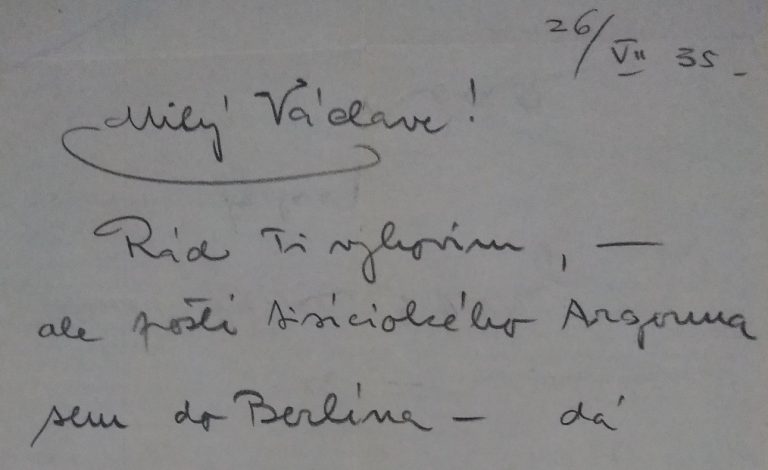 26/VII 35 -
Milý Václave!
Rád Ti vyhovím, —
ale pošli tisíciokého Argouna
sem do Berlína - dá